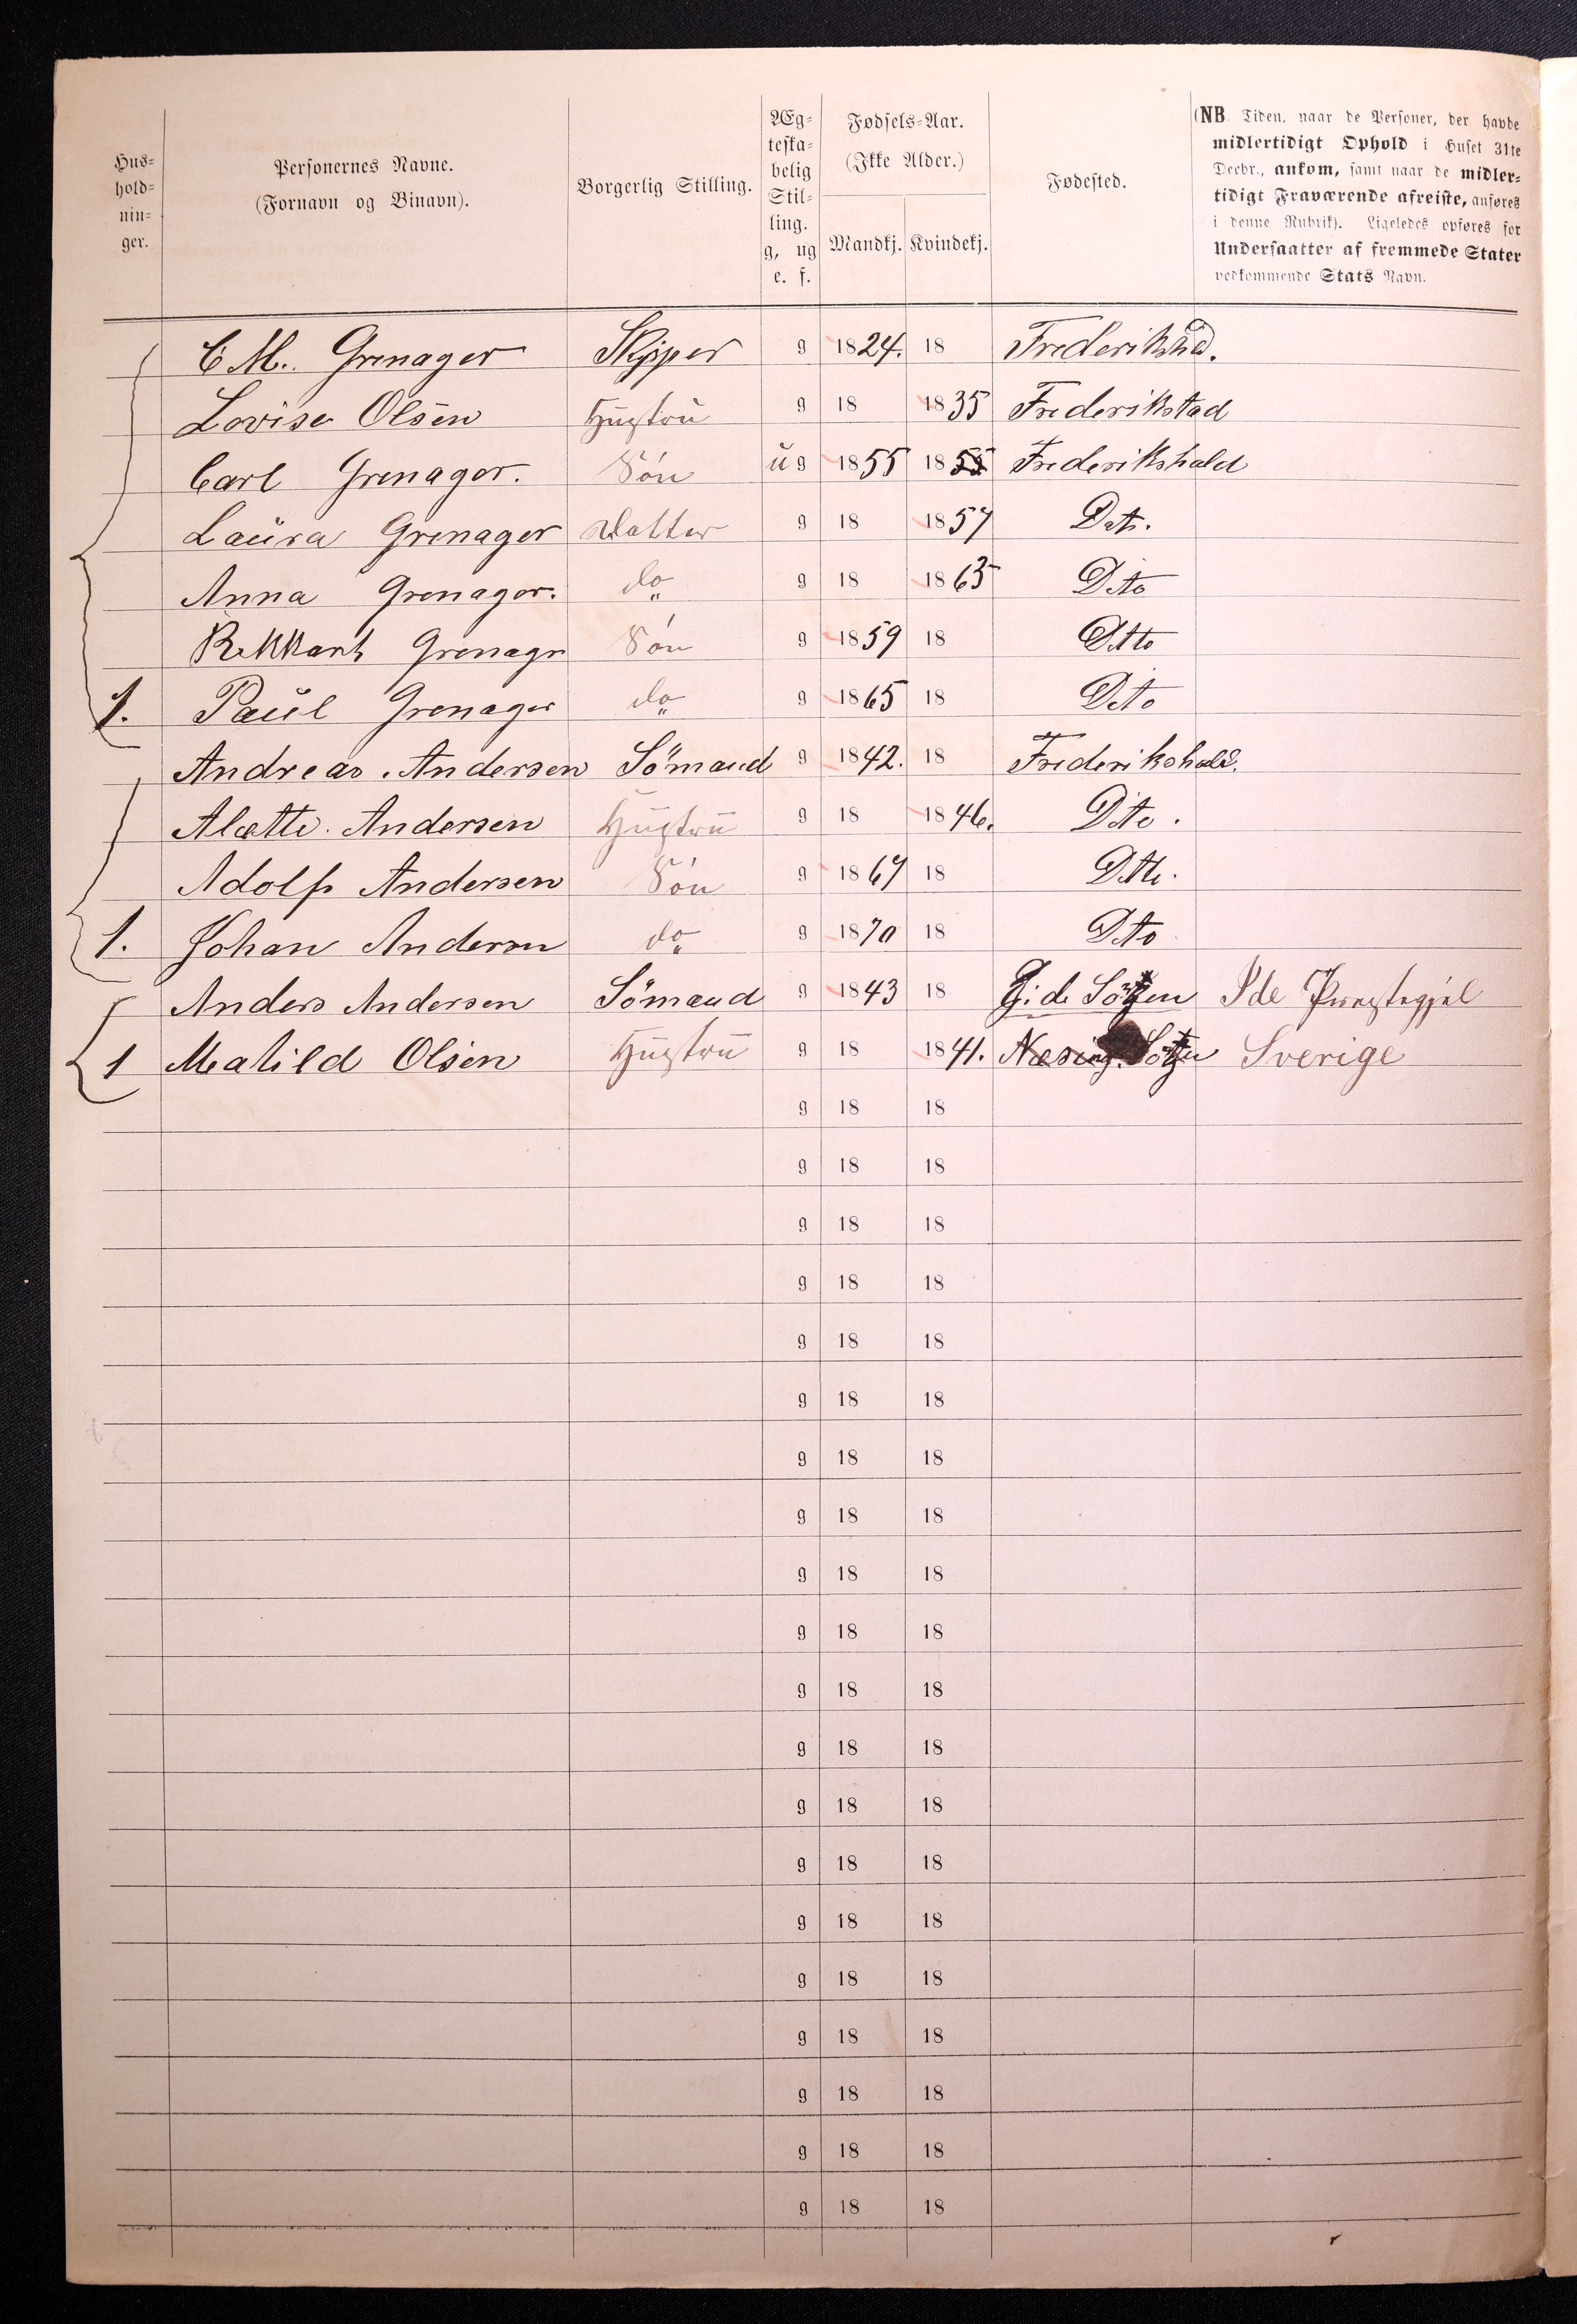 Hus=
hold=
nin=
ger.
Personernes Navne.
(Fornavn og Binavn).
Borgerlig Stilling.
Æg=
teska=
belig
Stil=
ling.
g, ug
e. f.
Fødsels=Aar.
(Ikke Alder.)
Mandkj. Kvindekj.
Fødested.
(NB. Tiden, naar de Personer, der havde
midlertidigt Ophold i Huset 31te
Decbr., ankom, samt naar de midler=
tidigt Fraværende afreiste, anføres
i denne Rubrik). Ligeledes opføres for
Undersaatter af fremmede Stater
vedkommende Stats Navn.
C M. Grenager Skipper g 1824. 18
Lovise Olsen Hustru g 18 1835 Frederikstad
Carl Grenager. Søn ug 1855 1855 Frederikshald
Laura Grenager Datter g 18 1857 Dto.
Anna Grenager. do g 18 1863 Dito
Grenager Søn g 1859 18 Ditto
1. Paul Grenager do g 1865 18 Dito
Andreas Andersen Sömand g 1842. 18 Frederikshald.
Alette Andersen Hustru g 18 1846. Dito.
Adolf Andersen Søn g 1867 18 Ditto.
1. Johan Andersen do g 1870 18 Dito
Anders Andersen Sömand g 1843 18 Ide Præstegjel
1 Matild Olsen Hustru g 18 1841. Sverige
g 18 18
g 18 18
g 18 18
g 18 18
g 18 18
g 18 18
g 18 18
g 18 18
g 18 18
g 18 18
g 18 18
g 18 18
g 18 18
g 18 18
g 18 18
g 18 18
g 18 18
g 18 18
g 18 18
g 18 18